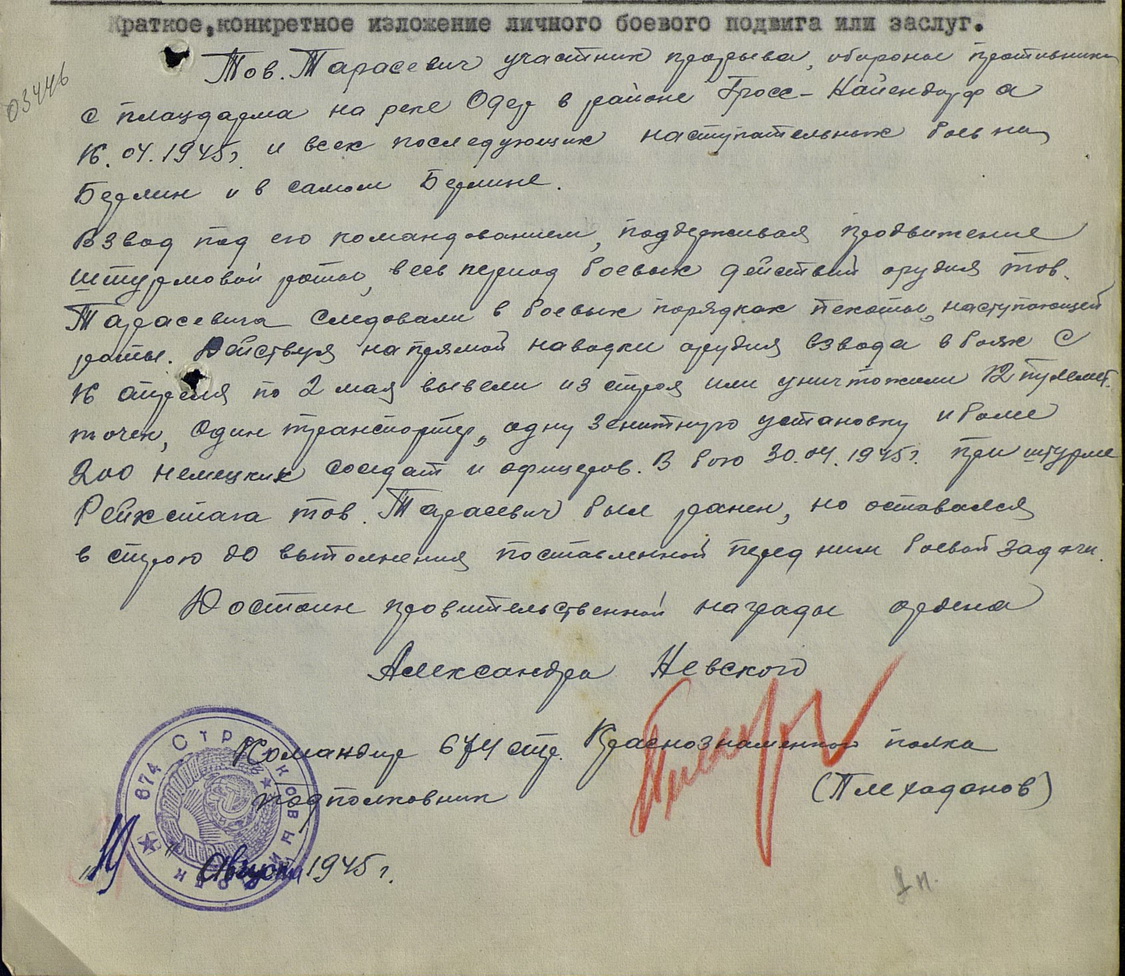 Краткое, конкретное изложение личного боевого подвига или заслуг.
03446
Тов. Тарасевич участник прорыва, обороны противника
с плацдарма на реке Одер в районе Гросс-Найендорфа
16.04.1945г. и всех последующих наступательных боев на
Берлин и в самом Берлине.
Взвод под его командованием, поддерживая продвижение
штурмовой роты, весь период боевых действий орудия тов.
Тарасевича следовали в боевых порядках пехоты, наступающей
роты. Действуя на прямой наводки орудия взвода в боях с
16 апреля по 2 мая вывели из строя или уничтожили 12 пулемет.
точек, один транспортер, одну зенитную установку и более
200 немецких солдат и офицеров. В бою 30.04.1945г. при штурме
Рейхстага тов. Тарасевич был ранен, но оставался
в строю до выполнения поставленной перед ним боевой задачи.
Достоин правительственной награды ордена
Александра Невского
Командир 674 стр. Краснознаменного полка
подполковник (Плеходанов)
" " Августа 1945 г.
674 Стрелковый полк